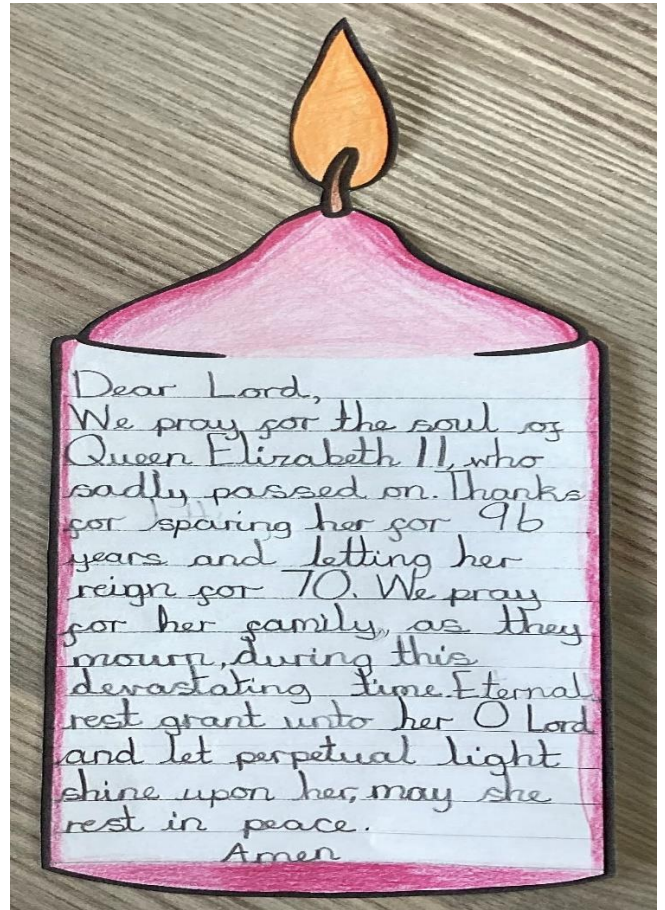 Dear Lord,
We pray for the soul of
Queen Elizabeth II, who
sadly passed on. Thanks
for sparing her for 96
years and letting her
reign for 70. We pray
for her family, as they
mourn, during this
devastating time. Eternal
rest grant unto her O Lord
and let perpetual light
shine upon her, may she
rest in peace.
Amen